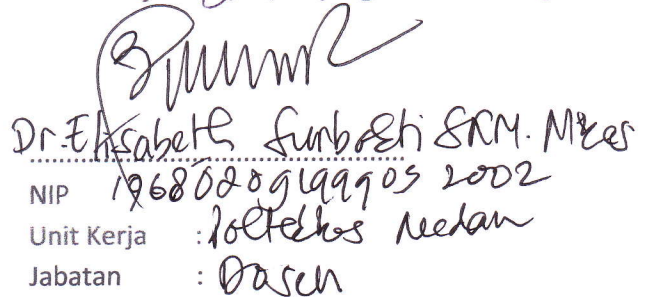 Dr. Elisabeth Surbakti SKM. MKes
NIP 196802091999052002
Unit Kerja : Poltekkes Medan
Jabatan : Dosen